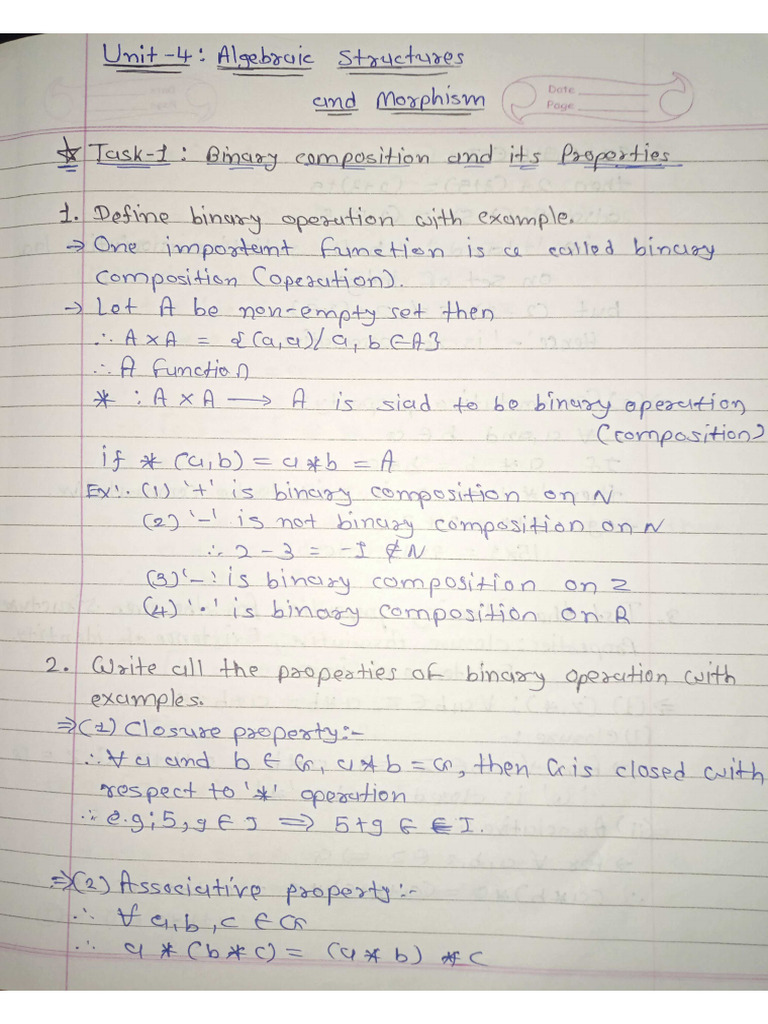 Unit-4: Algebraic Structures
and Morphism
Date
Page
☆ Task-1: Binary composition and its Properties
1. Define binary operation with example.
→ One important function is a called binary
composition (operation).
→ Let A be non-empty set then
∴ A × A = {(a,a)/ a, b ∈ A}
∴ A function
* : A × A ⟶ A is siad to be binary operation
(composition)
if * (a,b) = a * b = A
Ex:. (1) '+' is binary composition on N
(2) '-' is not binary composition on N
∴ 2 - 3 = -1 ∉ N
(3) '-' is binary composition on Z
(4) '·' is binary composition on R
2. Write all the properties of binary operation with
examples.
⇒ (1) Closure property:-
∴ ∀ a and b ∈ G, a * b = G, then G is closed with
respect to '*' operation
∴ e.g; 5, 9 ∈ I ⟹ 5+9 ∈ I.
⇒ (2) Associative property:-
∴ ∀ a, b, c ∈ G
∴ a * (b * c) = (a * b) * c